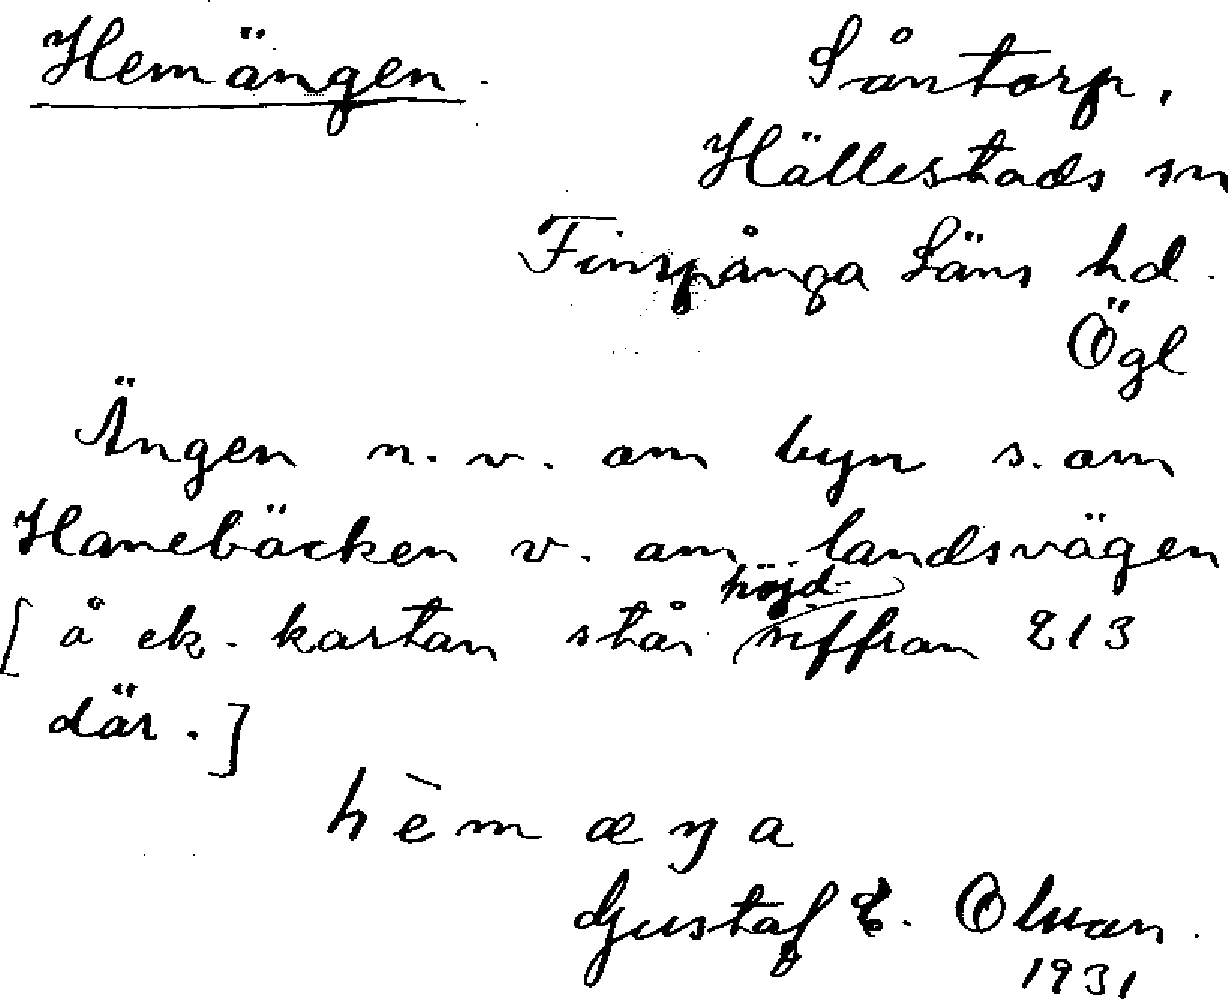 Hemängen.
Såntorp,
Hällestads sn
Finspånga Läns hd.
Ögl
Ängen n.v. om byn s. om
Hanebäcken v. om landsvägen
[å ek. kartan står höjdsiffran 213
där.]
hèmæŋa
Gustaf E. Olson.
1931